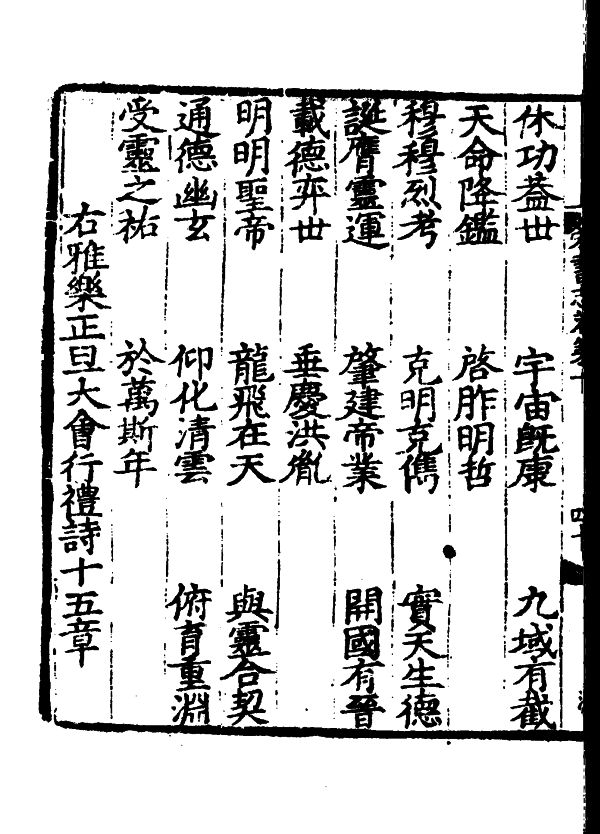 休功蓋世 宇宙既康 九域有截
天命降鑑 啓胙明哲
穆穆烈考 克明克儁 實天生德
誕膺靈運 肇建帝業 開國有晉
載德弈世 垂慶洪胤
明明聖帝 龍飛在天 與靈合契
通德幽玄 仰化清雲 俯育重淵
受靈之祐 於萬斯年
右雅樂正旦大會行禮詩十五章